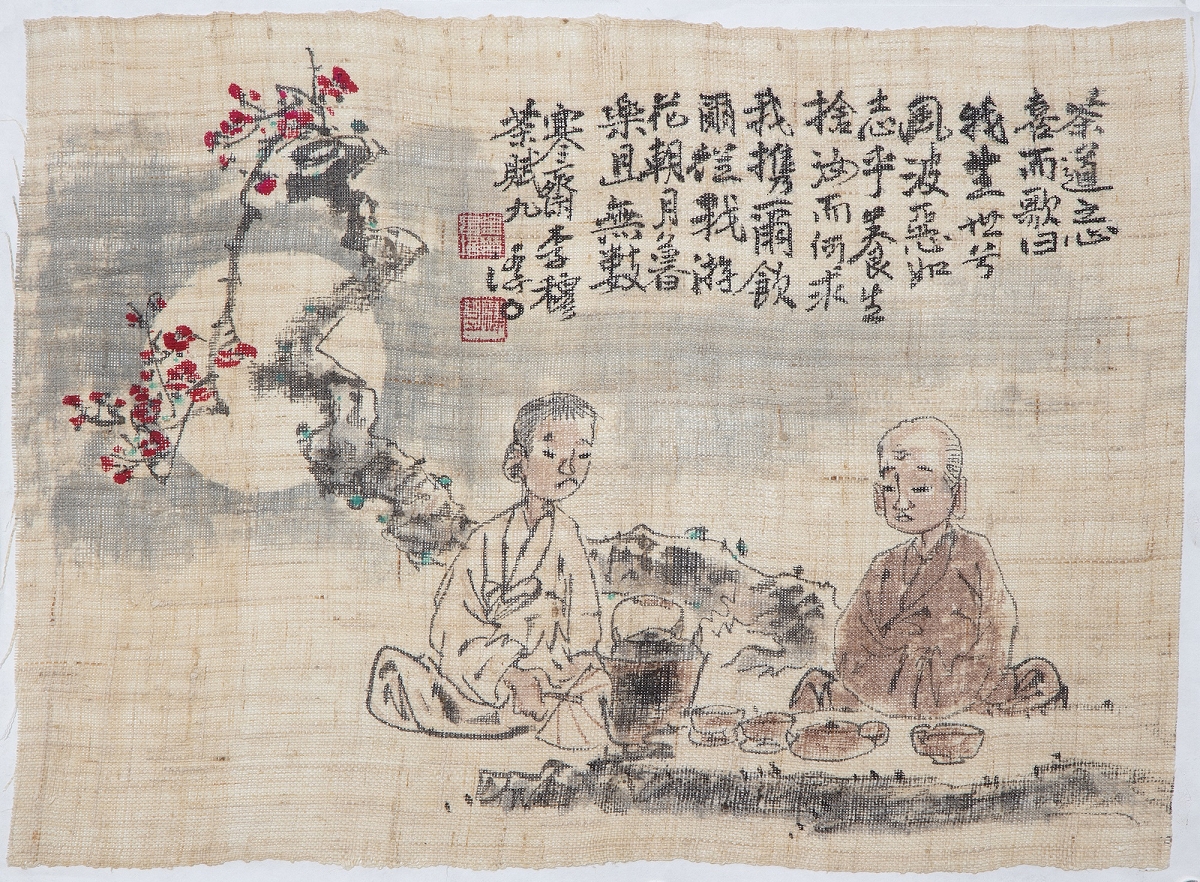 茶道
喜而歌曰
我生世兮
風波惡如
志乎養生
捨汝而何求
我携爾飮
爾從我游
花朝月暮
樂且無數
寒齋李穆
茶賦九